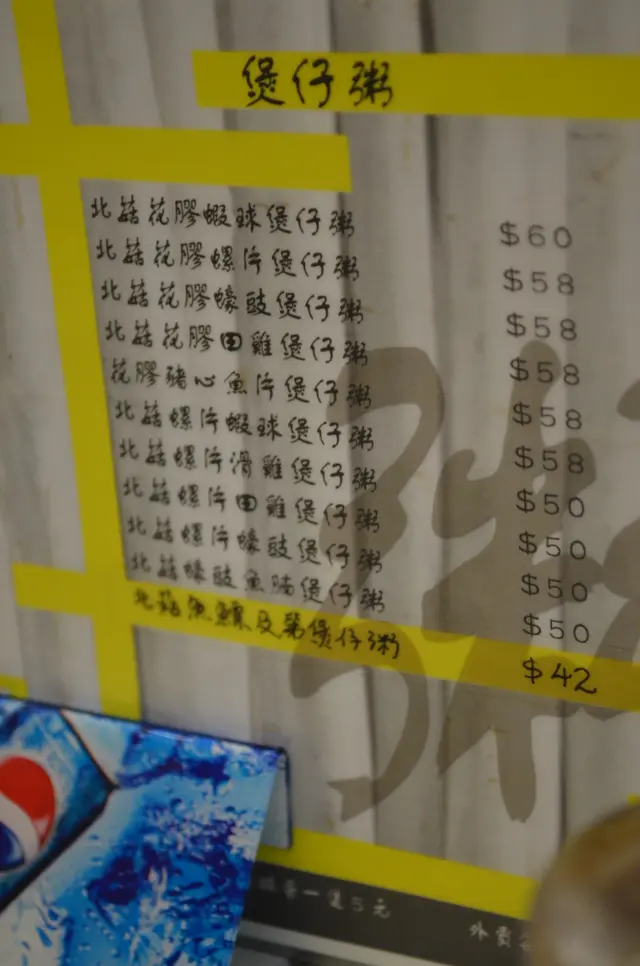 煲仔粥
北菇花膠蝦球煲仔粥 $60
北菇花膠螺片煲仔粥 $58
北菇花膠蠔豉煲仔粥 $58
北菇花膠田雞煲仔粥 $58
花膠豬心魚片煲仔粥 $58
北菇螺片蝦球煲仔粥 $58
北菇螺片滑雞煲仔粥 $50
北菇螺片田雞煲仔粥 $50
北菇螺片蠔豉煲仔粥 $50
北菇蠔豉魚腩煲仔粥 $50
北菇魚鰾及第煲仔粥 $42
粥
一送5元
外賣